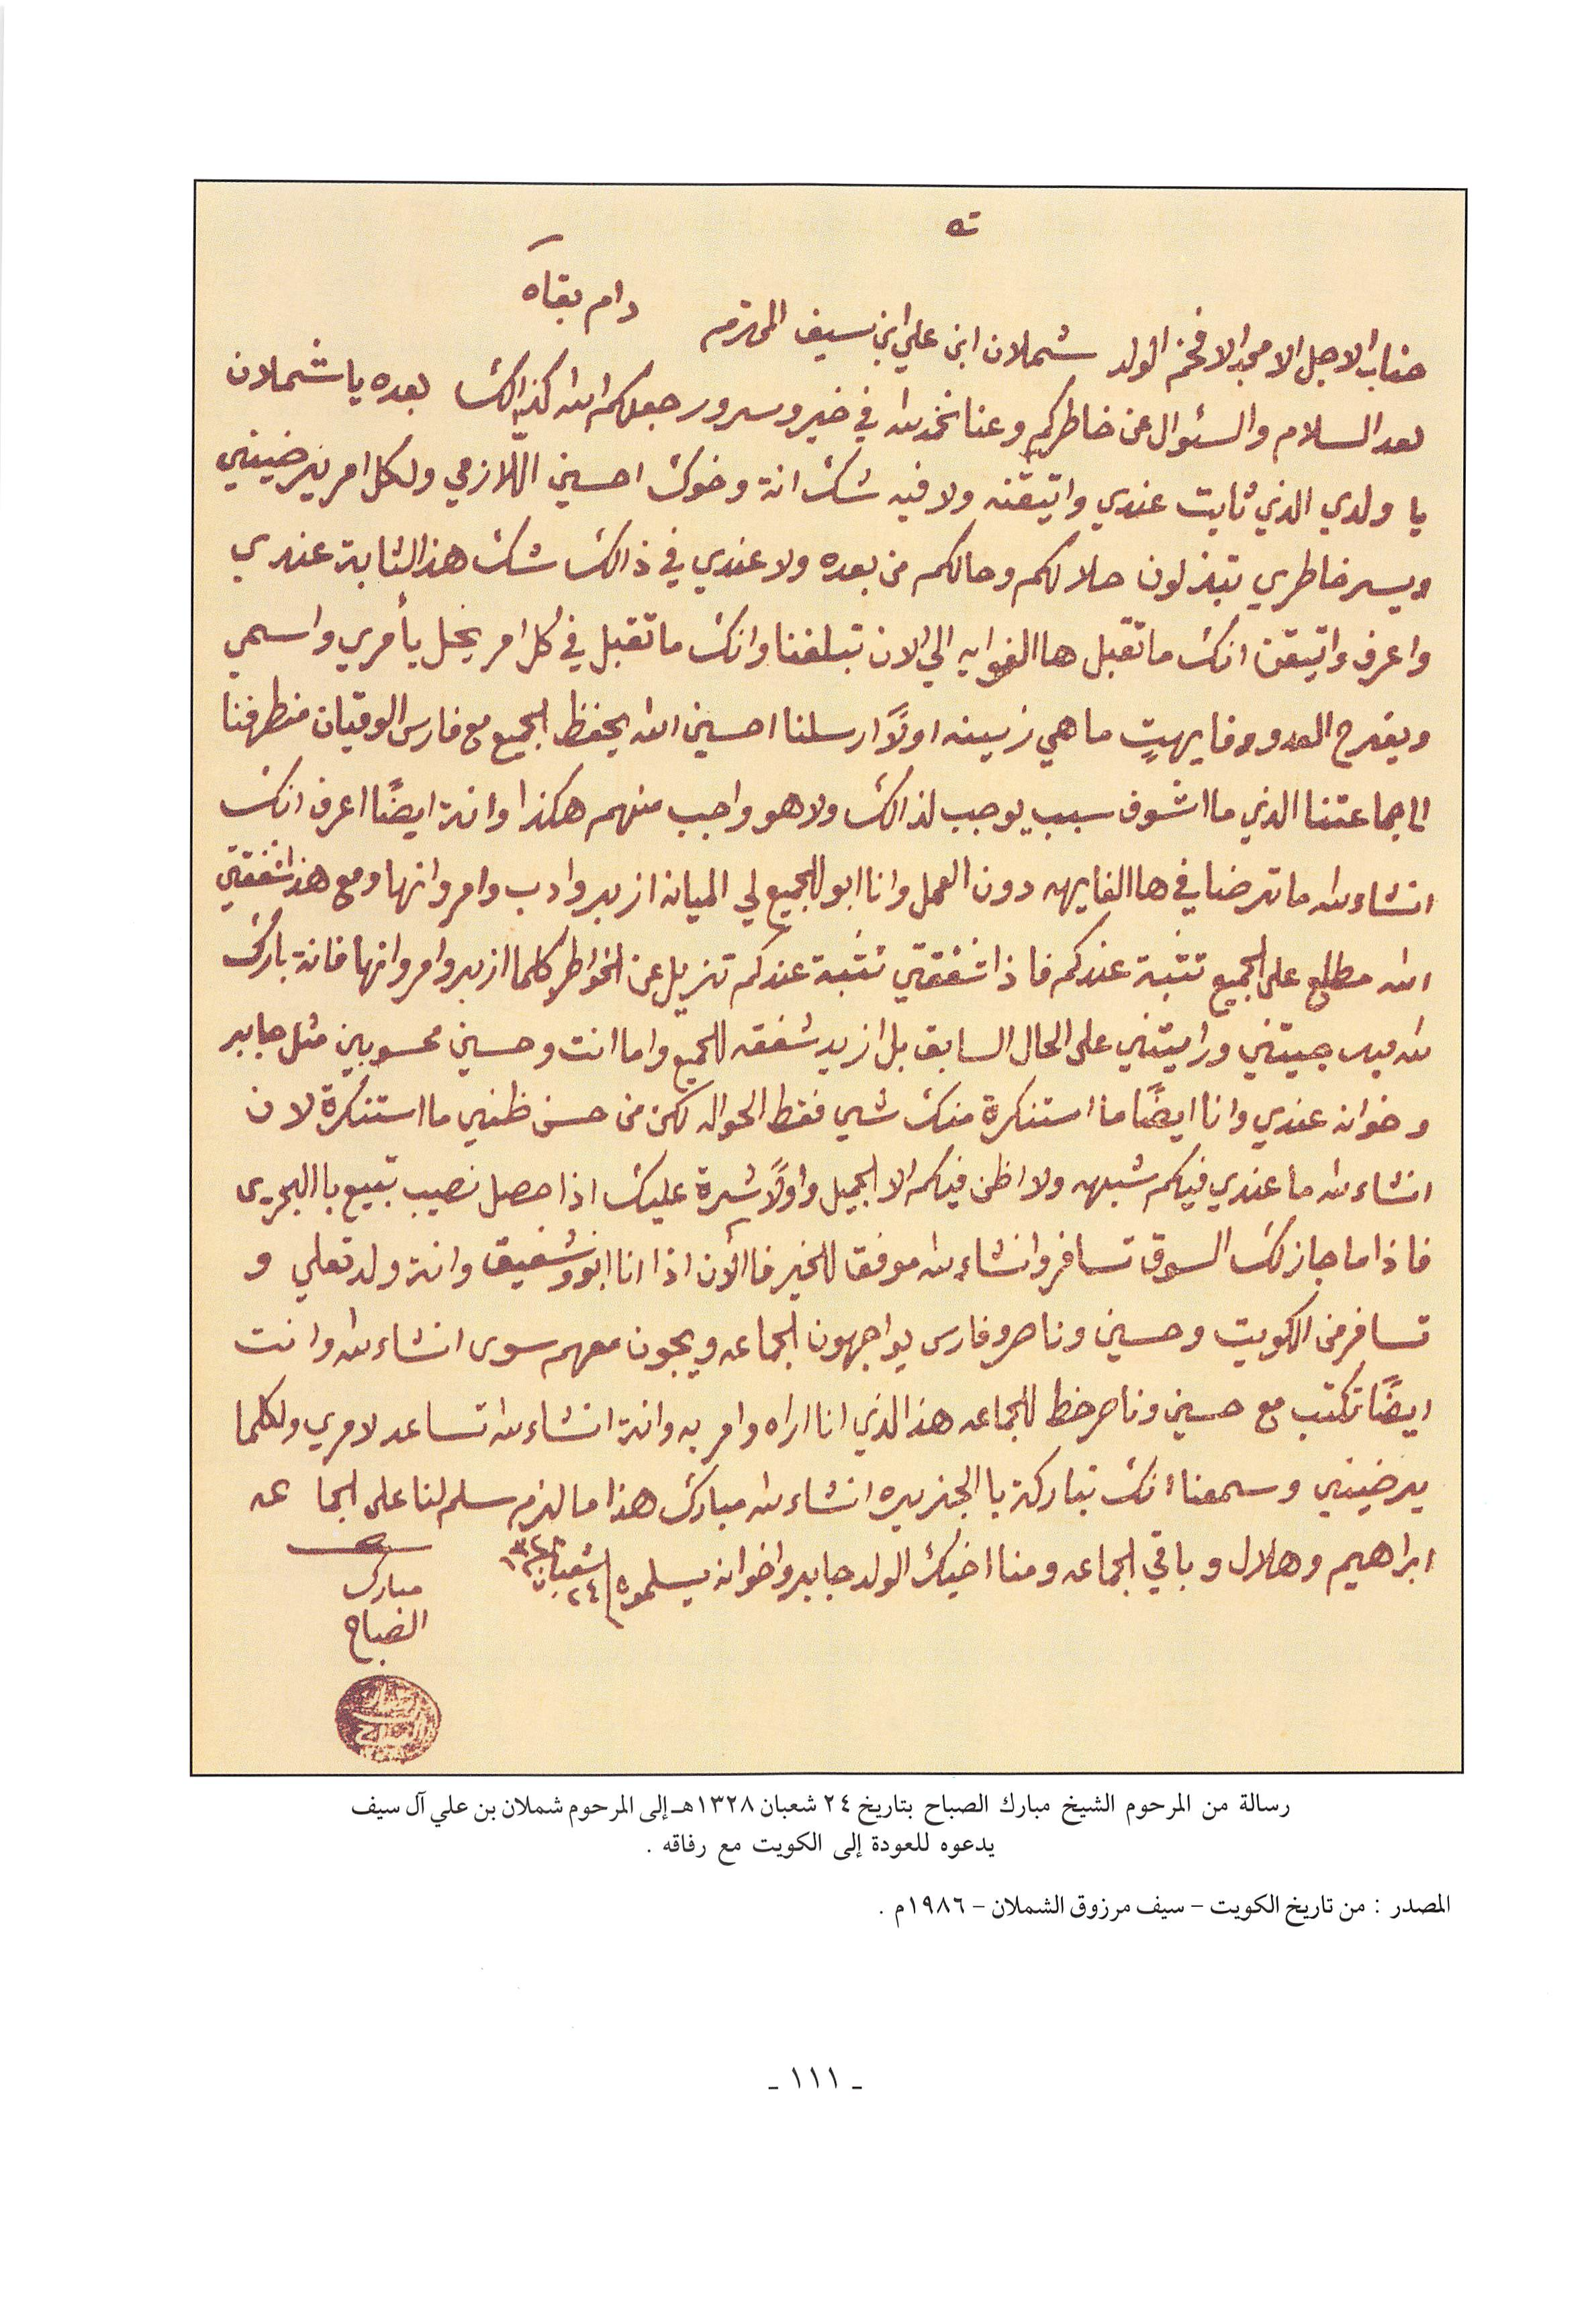 دام بقاه
جناب الاجل الامجد الافخم الولد شملان ابن علي ابن سيف المحترم
بعد السلام والسئوال عن خاطركم وعنا نحمد لله في خير وسرور جعلكم الله كذالك بعده يا شملان
يا ولدي الذي ثابت عندي واتيقنه ولا فيه شك انة وخوك احسين اللازمي ولكل امر يرضيني
ويسر خاطري تبذلون حلالكم وحالكم من بعده ولا عندي في ذالك شك هذا الثابة عندي
واعرف واتيقن انك ما تقبل هاالغوايه الي الان تبلغنا وانك ما تقبل في كل امر يخل يأمري واسمي
ويفرح العدو وفايهتٍ ما هي زينه اولاً ارسلنا احسين الله يحفظ الجميع مع فارس الوقيان منطرفنا
الا جماعتنا الذي ما اشوف سبب يوجب لذالك ولا هو واجب منهم هكذا وانة ايضاً اعرف انك
انشاء لله ما ترضا في هاالفايهه دون العمل وانا ابو للجميع لي الميانه ازبر وادب وامر وانها ومع هذا شفقتي
الله مطلع على الجميع تثبة عندكم فاذا شفقتي تثبة عندكم تزيل عن الخواطر كلما ازبر وامر وانها فانة بارك
لله فيك جيتني وراتيتني على الحال السابق بل ازيد شفقه للجميع واما انت وحسين محسوبين مثل جابر
وخوانه عندي وانا ايضاً ما استنكرة منك شي فقط الحواله لكن من حسن ظني ما استنكرة لان
انشاء لله ما عندي فيكم شبهه ولا اظن فيكم الا الجميل واولاً شرة عليك اذا حصل نصيب تبيع باالبحرين
فاذا ما جاز لك السوق تسافر وانشاء لله موفقا للخير فاالأن اذا انا ابو وشفيق وانة ولد تعلي و
تسافر من الكويت وحسين وناصر وفارس يواجهون الجماعه ويجون معهم سوى انشاء لله وانت
ايضاً تكتب مع حسين وناصر خط للجماعه هذا الذي انا اراه وامر به وانة انشاء لله تساعد لامري ولكلما
يرضيني وسمعنا انك تباركة باالجزيره انشاء لله مبارك هذا ما لزم سلم لنا على الجماعه
ابراهيم وهلال وباقي الجماعه ومنا اخيك الولد جابر واخوانه يسلمون ٢٤ شعبان ١٣٢٨
مبارك
الصباح
رسالة من المرحوم الشيخ مبارك الصباح بتاريخ ٢٤ شعبان ١٣٢٨هـ إلى المرحوم شملان بن علي آل سيف
يدعوه للعودة إلى الكويت مع رفاقه .
المصدر : من تاريخ الكويت – سيف مرزوق الشملان – ١٩٨٦م .
ـ ١١١ ـ